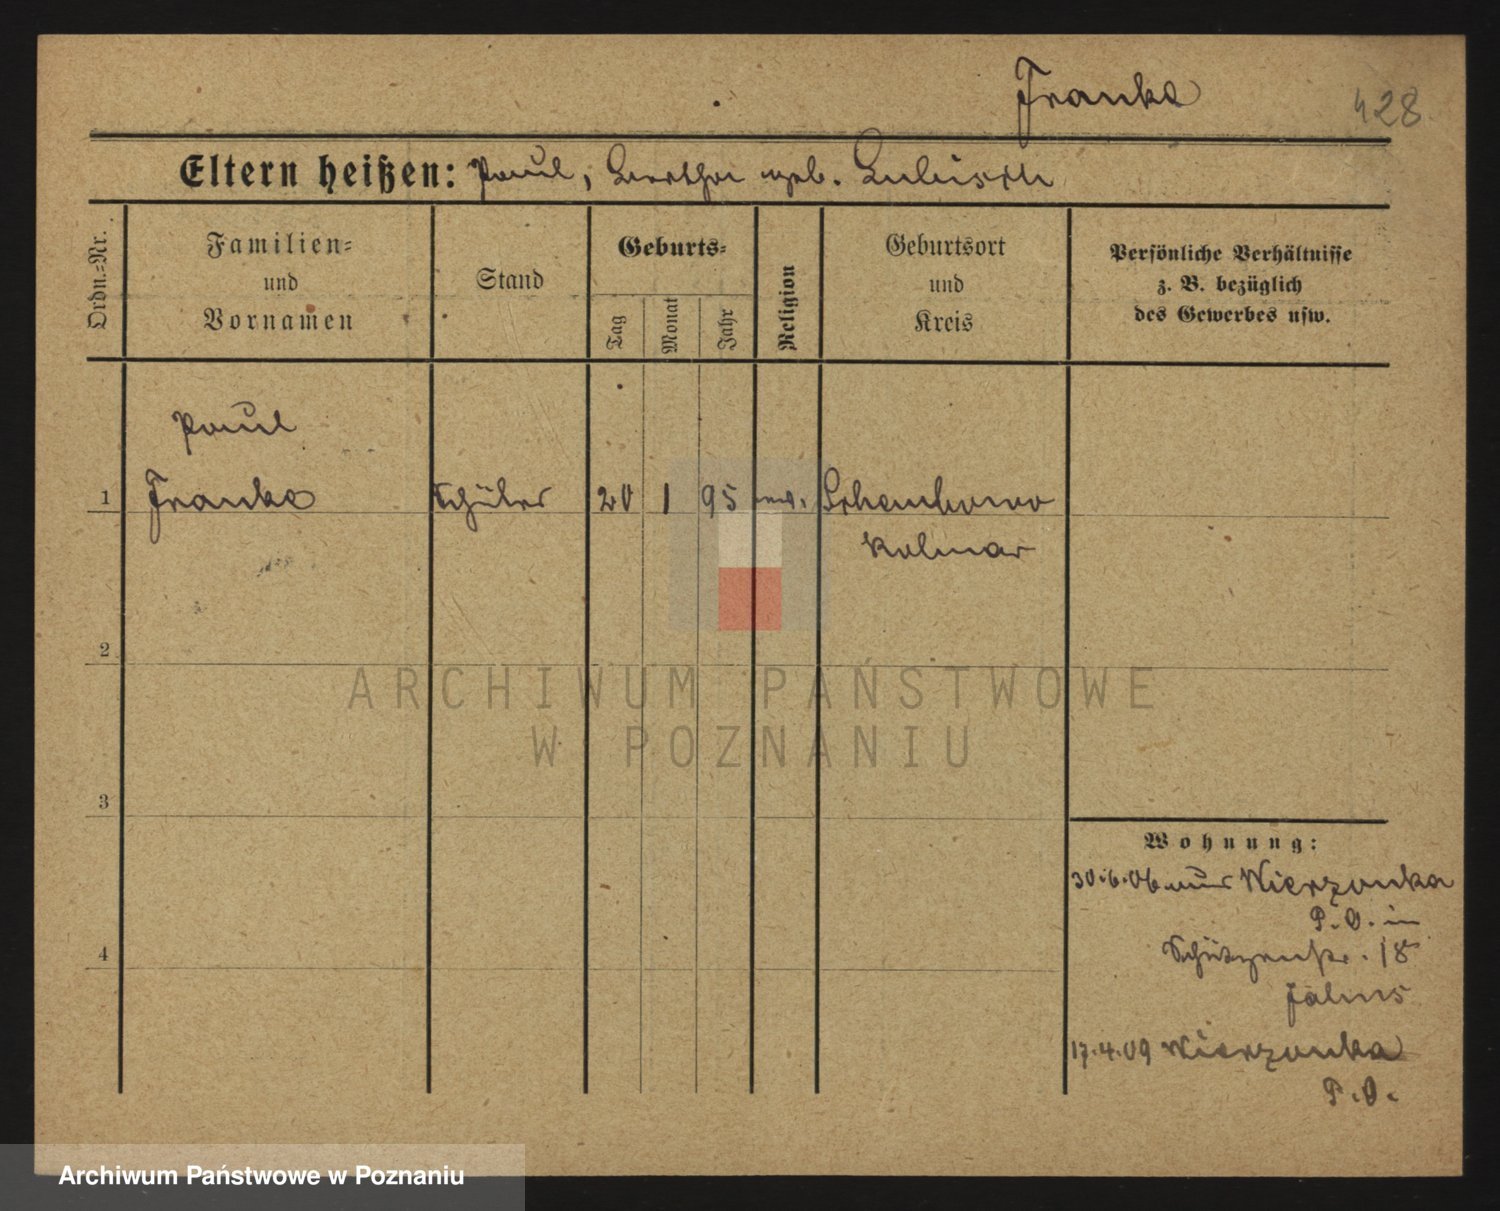 Franke
428.
Eltern heißen: Paul, Bertha geb. Lubisch
Ordn.=Nr.
Familien=
und
Vornamen
Stand
Geburts=
Tag
Monat
Jahr
Religion
Geburtsort
und
Kreis
Persönliche Verhältnisse
z. B. bezüglich
des Gewerbes usw.
Paul
1 Franke Schüler 20 1 95 ev.
Kolmar
2
3
4
Wohnung:
30.6.06 aus Wierzonka
P. O. in
Schützenstr. 18
17.4.09 Wierzonka
P. O.
ARCHIWUM PAŃSTWOWE
W POZNANIU
Archiwum Państwowe w Poznaniu